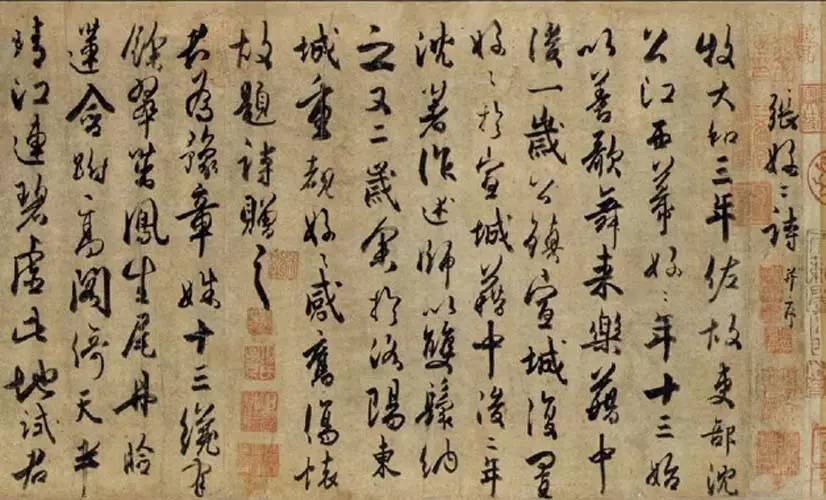 張好〻詩并序
牧大和三年佐故吏部沈
公江西幕好〻年十三始
以善歌舞来樂籍中
後一歲公鎮宣城復置
好〻於宣城籍中後二年
沈著作述師以雙鬟納
之又二歲余於洛陽東
城重覩好〻感舊傷懷
故題詩贈之
君為豫章姝十三纔有
餘翠茁鳳生尾丹臉
蓮含跗高閣倚天半
晴江連碧虛此地試君